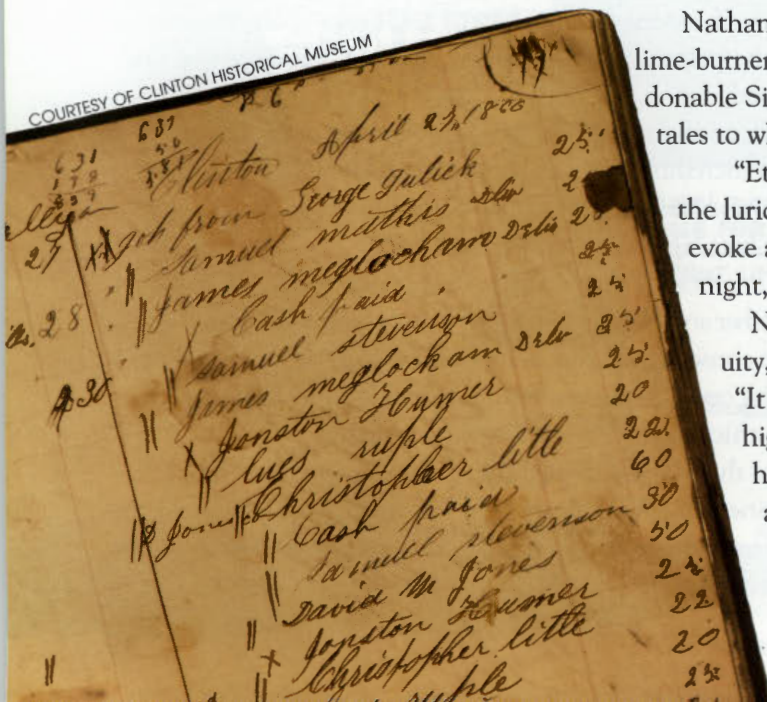 COURTESY OF CLINTON HISTORICAL MUSEUM
Clinton April
job from George Gulick 25
Samuel mathis Deliv
James meglocham Deliv 25
Cash paid
27
samuel stevenson
28
James meglocham Deliv 25
30
Jonston Humer 25
lues ruple 20
Christopher little 22
D Jones Cash paid 60
samuel stevenson 30
David M Jones 50
Jonston Humer
Christopher little 22
ruple 20
Nathan
lime-burner
donable Si
tales to wh
“Et
the luric
evoke a
night,
N
uity,
“It
hig
h
a